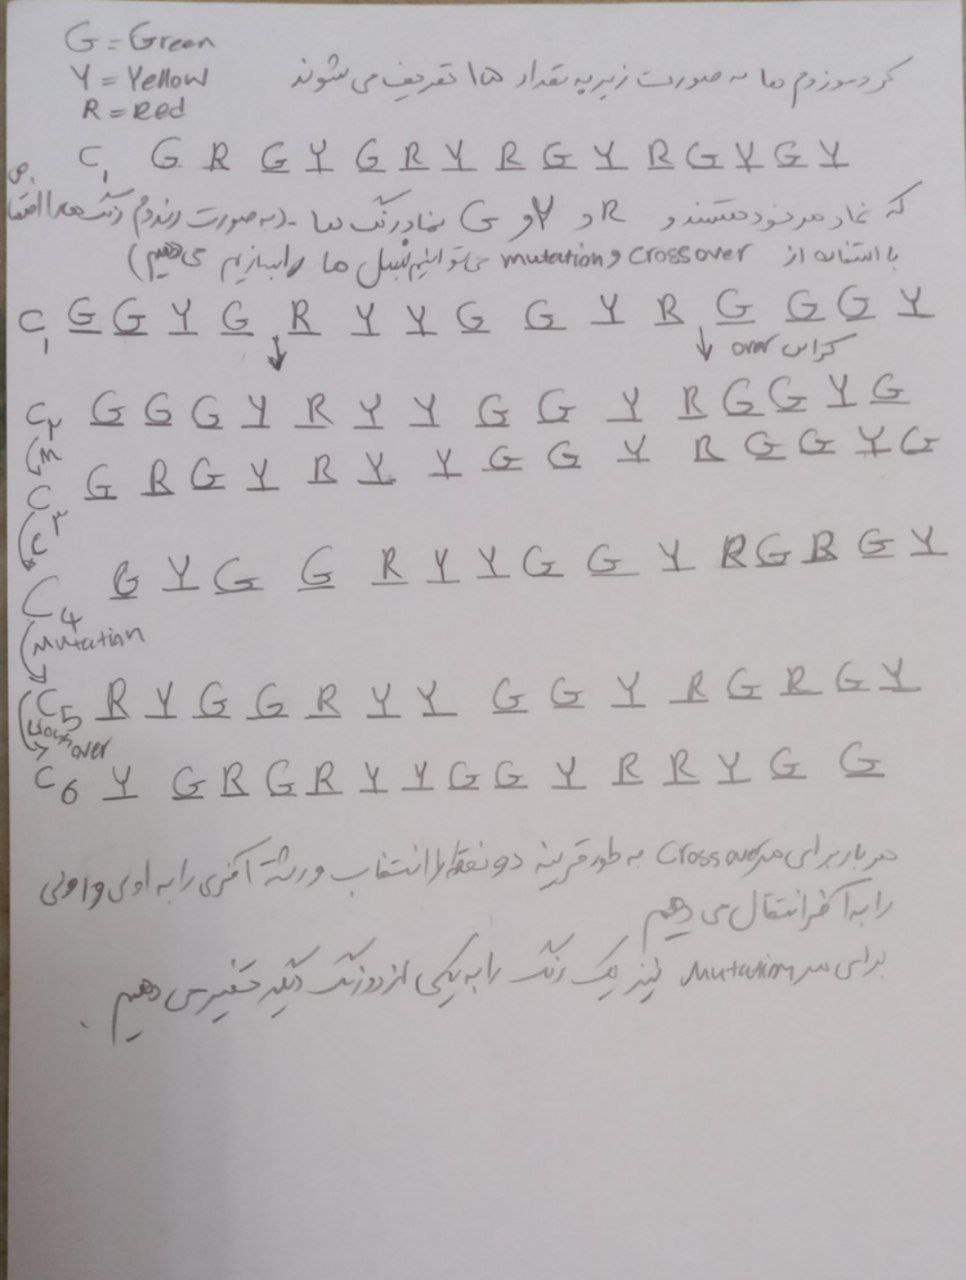 G = Green
Y = Yellow
R = Red
کروموزوم ها به صورت زیر به تعداد ۱۵ تعریف می شوند
C₁ G R G Y G R Y R G Y R G Y G Y
که نماد هر خود هستند و R و Y و G نماد رنگ ها - (به صورت رندوم رنگ ها را
با استفاده از crossover و mutation می توانیم نسل ها را بسازیم می دهیم)
C₁ G G Y G R Y Y G G Y R G G G Y
↓ ↓ کراس over
C₂ G G G Y R Y Y G G Y R G G Y G
m
C₃ G R G Y R Y Y G G Y R G G Y G
C
C₄ G Y G G R Y Y G G Y R G R G Y
Mutation
C₅ R Y G G R Y Y G G Y R G R G Y
Crossover
C₆ Y G R G R Y Y G G Y R R Y G G
هر بار برای هر Crossover به طور قرینه دو نقطه را انتخاب و رشته آخری را به اولی و اولی
را به آخر انتقال می دهیم
برای هر Mutation نیز یک رنگ را به یکی از دو رنگ دیگر تغییر می دهیم .